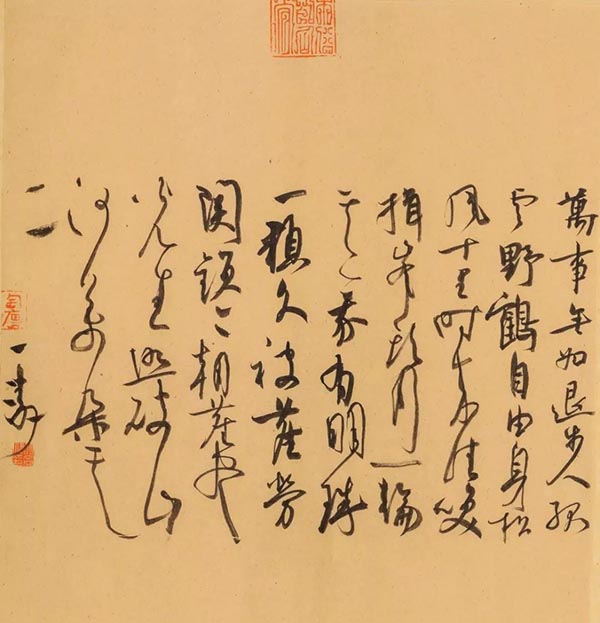 萬事無如退步人孤
雲野鶴自由身松
風十里時來往笑
揖峰頭月一輪
其一我有明珠
一顆久被塵勞
関鎖今朝塵盡
光生照破山
河萬朵其
二